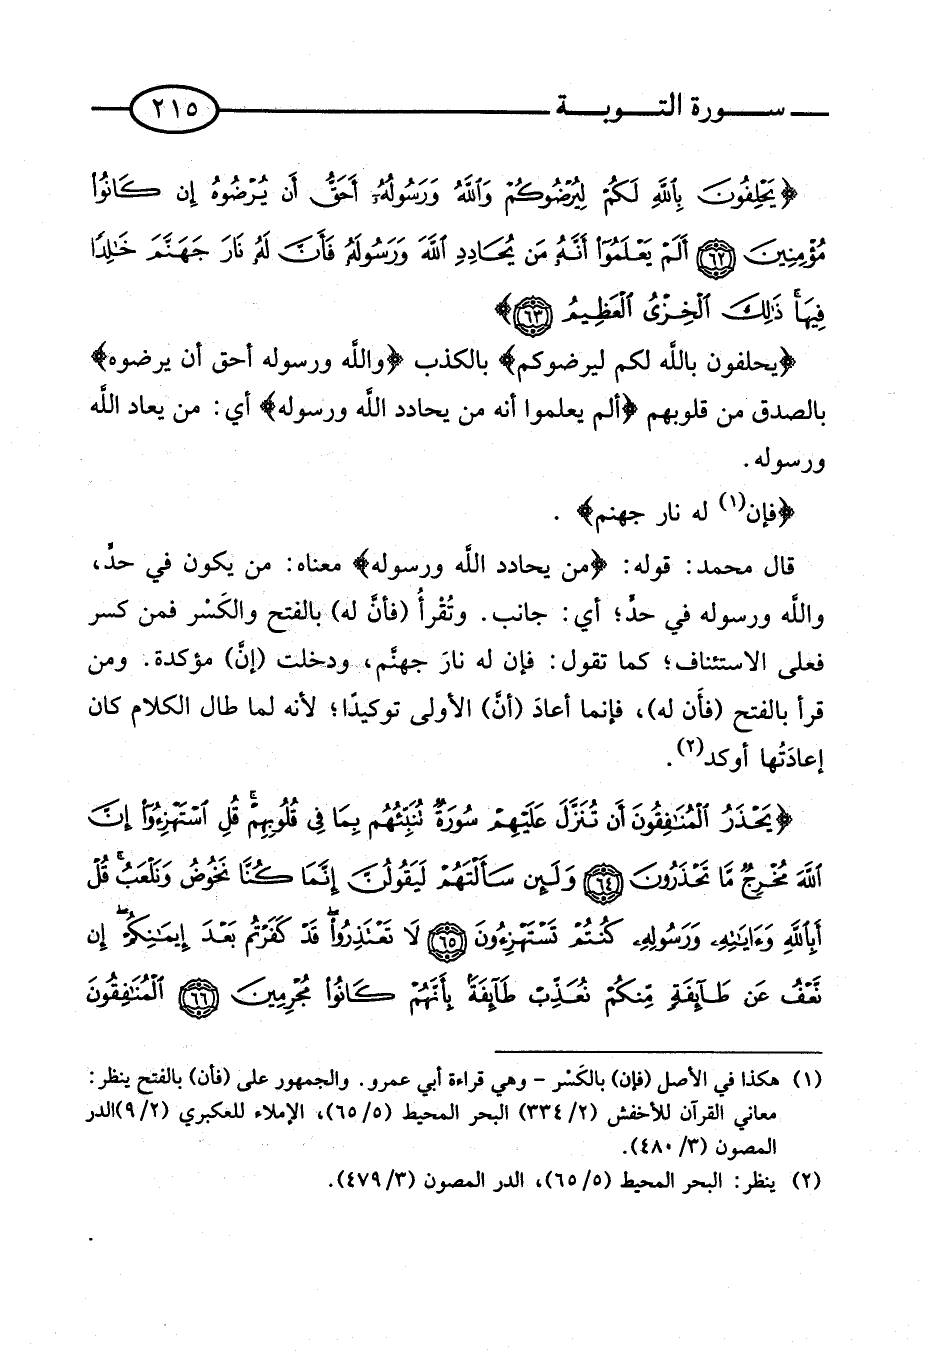 سورة التوبة ٢١٥
﴿يَحْلِفُونَ بِٱللَّهِ لَكُمْ لِيُرْضُوكُمْ وَٱللَّهُ وَرَسُولُهُۥٓ أَحَقُّ أَن يُرْضُوهُ إِن كَانُوا۟
مُؤْمِنِينَ ٦٢ أَلَمْ يَعْلَمُوٓا۟ أَنَّهُۥ مَن يُحَادِدِ ٱللَّهَ وَرَسُولَهُۥ فَأَنَّ لَهُۥ نَارَ جَهَنَّمَ خَٰلِدًا
فِيهَا ۚ ذَٰلِكَ ٱلْخِزْىُ ٱلْعَظِيمُ ٦٣﴾
﴿يحلفون باللَّه لكم ليرضوكم﴾ بالكذب ﴿واللَّه ورسوله أحق أن يرضوه﴾
بالصدق من قلوبهم ﴿ألم يعلموا أنه من يحادد اللَّه ورسوله﴾ أي: من يعاد اللَّه
ورسوله.
﴿فإن(١) له نار جهنم﴾ .
قال محمد: قوله: ﴿من يحادد اللَّه ورسوله﴾ معناه: من يكون في حدٍّ،
واللَّه ورسوله في حدٍّ؛ أي: جانب. وتُقْرأُ (فأنَّ له) بالفتح والكَسْر فمن كسر
فعلى الاستئناف؛ كما تقول: فإن له نارَ جهنَّم، ودخلت (إنَّ) مؤكدة. ومن
قرأ بالفتح (فأَن له)، فإنما أعادَ (أنَّ) الأولى توكيدًا؛ لأنه لما طال الكلام كان
إعادَتُها أوكد(٢).
﴿يَحْذَرُ ٱلْمُنَٰفِقُونَ أَن تُنَزَّلَ عَلَيْهِمْ سُورَةٌ تُنَبِّئُهُم بِمَا فِى قُلُوبِهِمْ ۚ قُلِ ٱسْتَهْزِءُوٓا۟ إِنَّ
ٱللَّهَ مُخْرِجٌ مَّا تَحْذَرُونَ ٦٤ وَلَئِن سَأَلْتَهُمْ لَيَقُولُنَّ إِنَّمَا كُنَّا نَخُوضُ وَنَلْعَبُ ۚ قُلْ
أَبِٱللَّهِ وَءَايَٰتِهِۦ وَرَسُولِهِۦ كُنتُمْ تَسْتَهْزِءُونَ ٦٥ لَا تَعْتَذِرُوا۟ ۖ قَدْ كَفَرْتُم بَعْدَ إِيمَٰنِكُمْ ۖ إِن
نَّعْفُ عَن طَآئِفَةٍ مِّنكُمْ نُعَذِّبْ طَآئِفَةًۢ بِأَنَّهُمْ كَانُوا۟ مُجْرِمِينَ ٦٦ ٱلْمُنَٰفِقُونَ
(١) هكذا في الأصل (فإن) بالكَسْر - وهي قراءة أبي عمرو. والجمهور على (فأن) بالفتح ينظر:
معاني القرآن للأخفش (٢/ ٣٣٤) البحر المحيط (٥/ ٦٥)، الإملاء للعكبري (٢/ ٩)الدر
المصون (٣/ ٤٨٠).
(٢) ينظر: البحر المحيط (٥/ ٦٥)، الدر المصون (٣/ ٤٧٩).